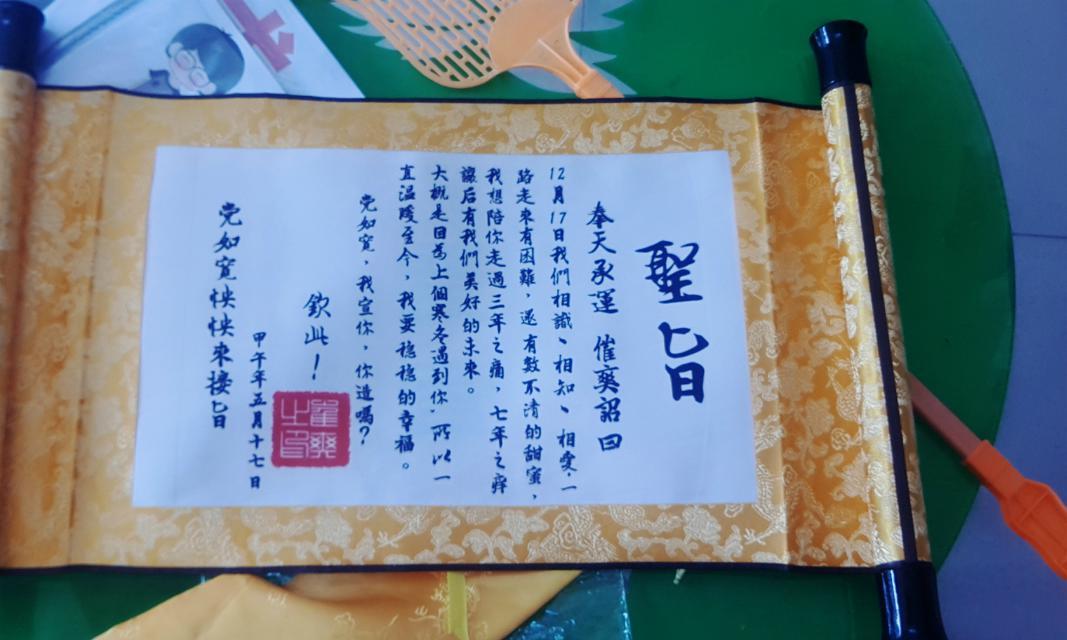 聖旨
奉天承運 催奕詔曰
12月17日我們相識、相知、相愛.一
路走來有困難，還有數不清的甜蜜，
我想陪你走過三年之痛，七年之癢
讓后有我們美好的未來。
大概是因為上個寒冬遇到你，所以一
直溫暖至今，我要穩穩的幸福。
党如寬，我宣你，你造嗎？
欽此！
甲午年五月十七日
党如寬怏怏來接旨